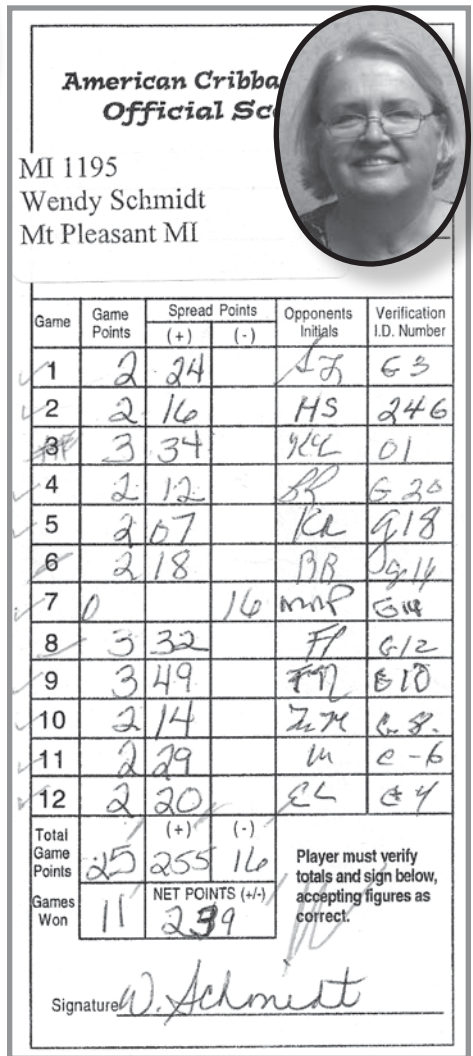 American Cribba
Official Sc
MI 1195
Wendy Schmidt
Mt Pleasant MI
Game Game Points Spread Points (+) (-) Opponents Initials Verification I.D. Number
1 2 24 G3
2 2 16 HS 246
3 3 34 01
4 2 12 G 20
5 2 07 KR g18
6 2 18 BB g14
7 0 16 MMP G14
8 3 32 FP G12
9 3 49 FM G10
10 2 14 G.8.
11 2 29 e-6
12 2 20 EL G4
Total Game Points 25 (+) 255 (-) 16
Games Won 11 NET POINTS (+/-) 239
Player must verify
totals and sign below,
accepting figures as
correct.
Signature W. Schmidt